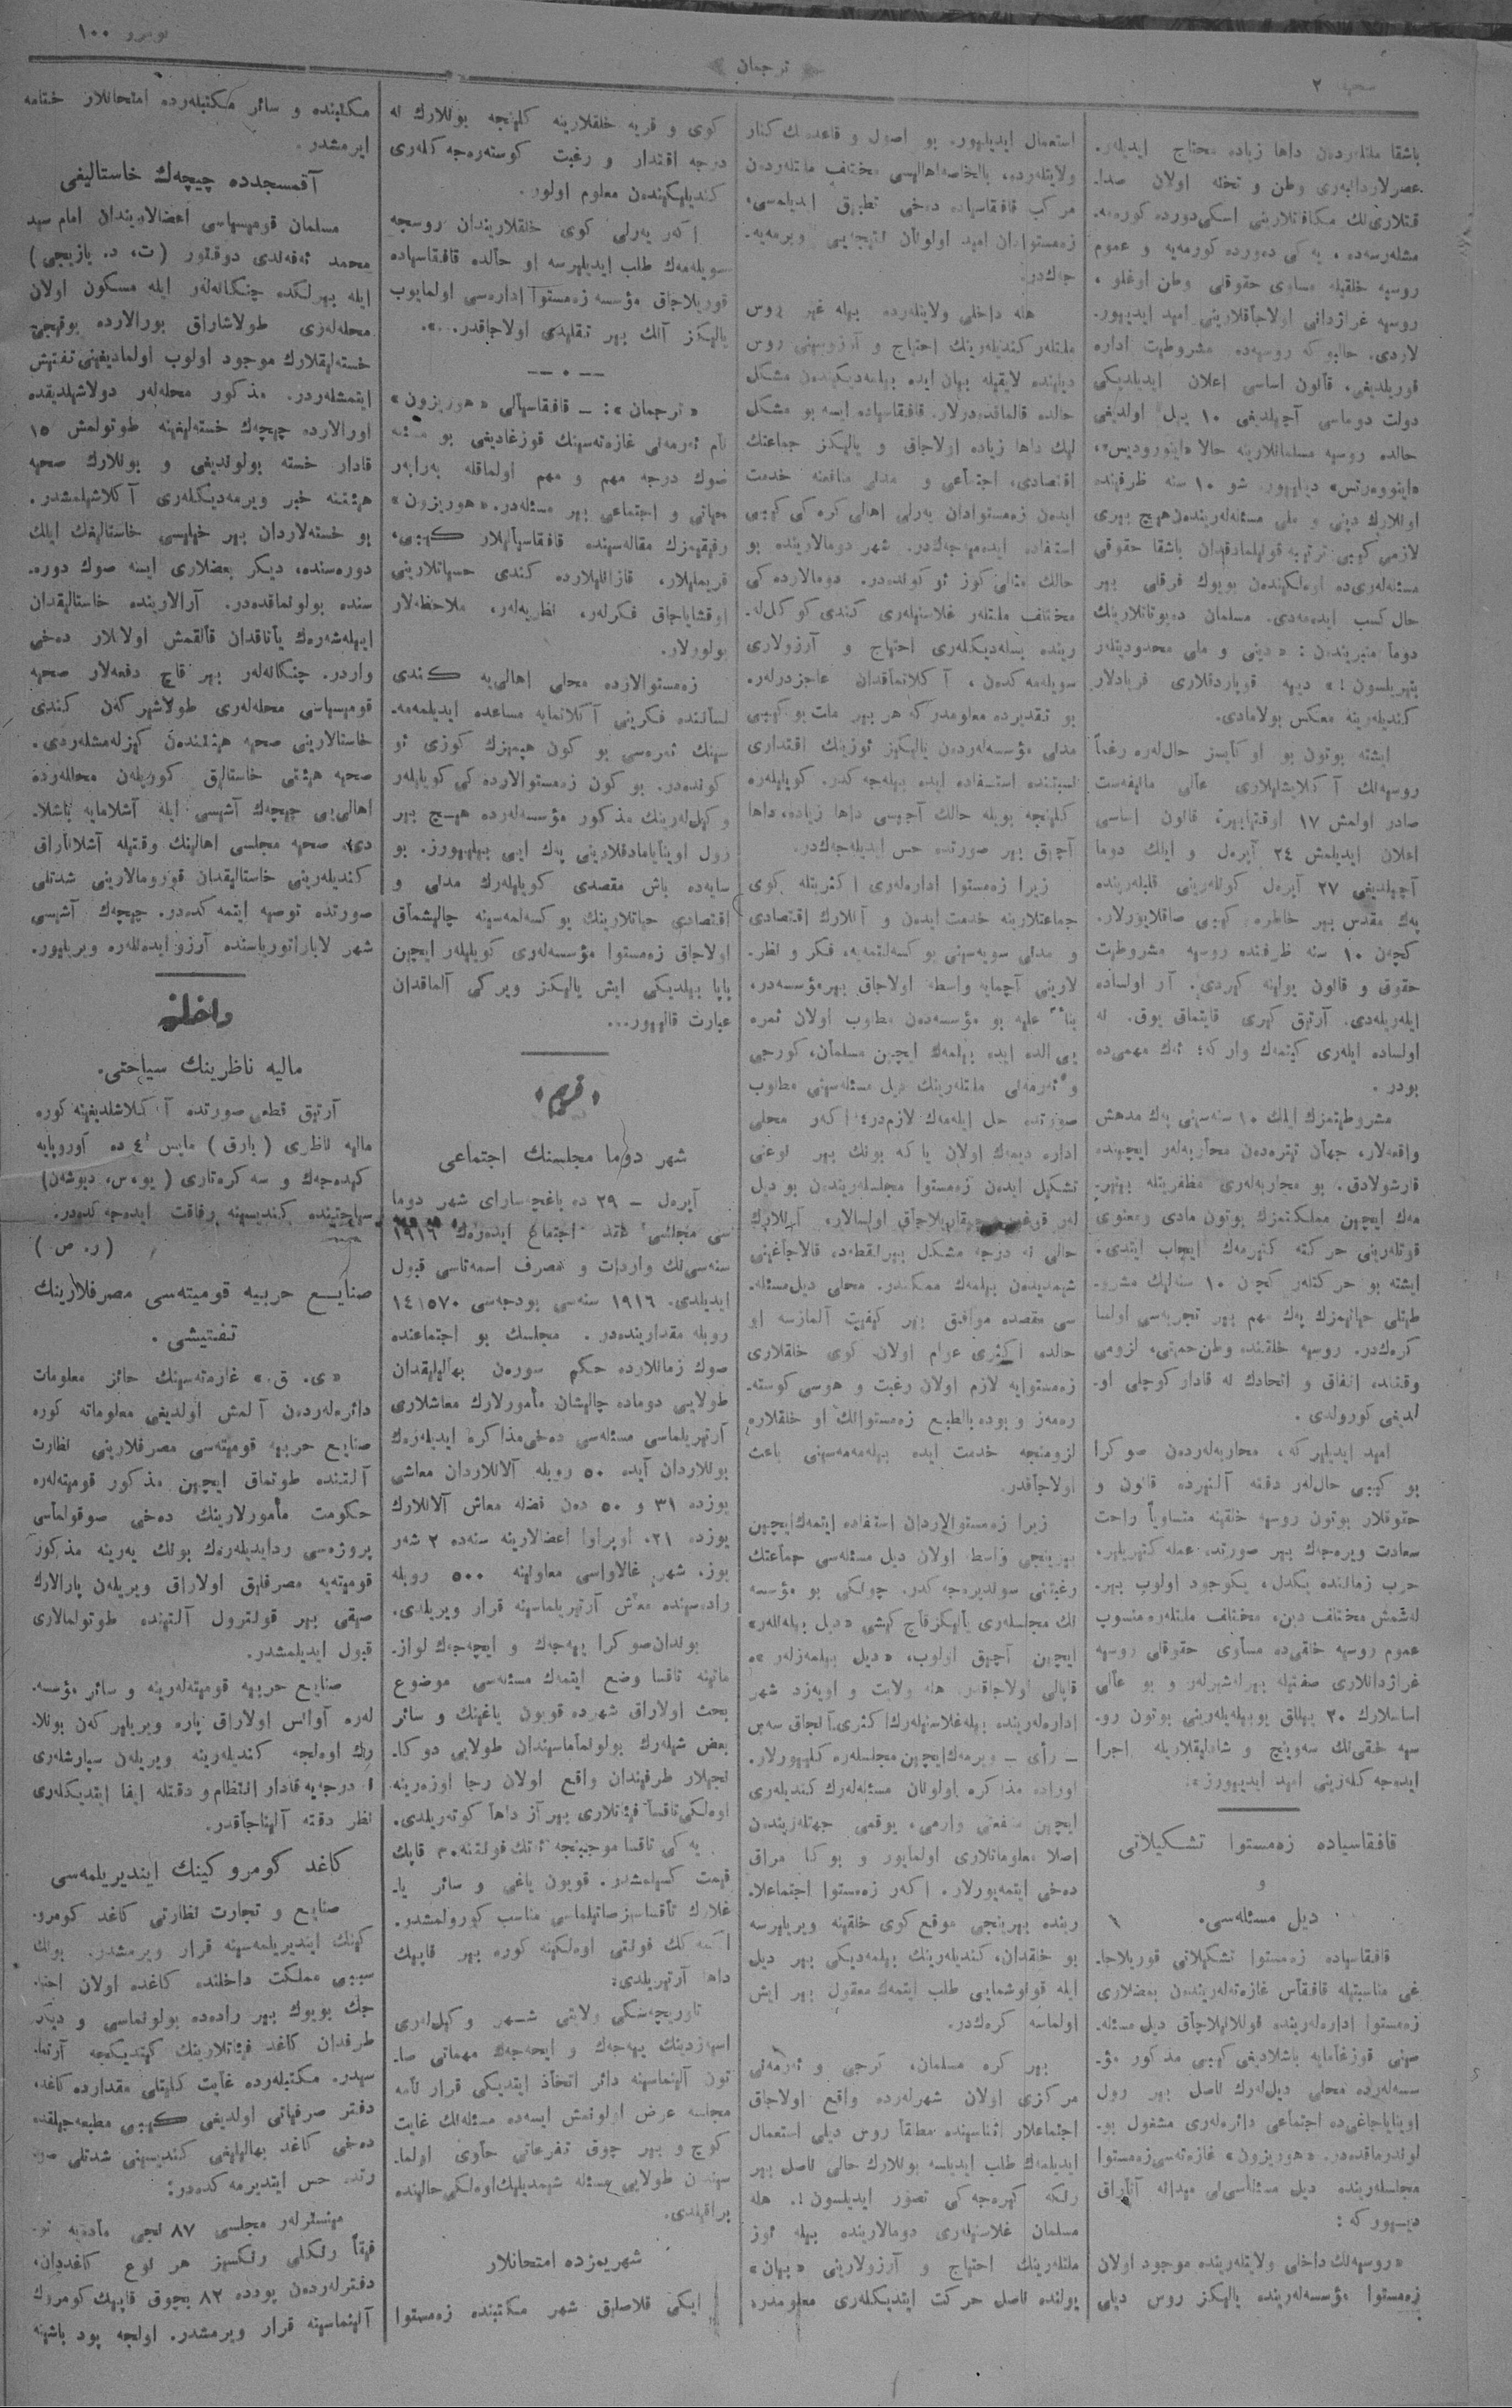 صحیفه ۲
ترجمان
نومرو ۱۰۰
باشقا ملتلردن داها زیاده محتاج ایدیلەر.
عصرلاردانبەری وطن و تخته اولان صدا-
قتلاری‌نك مكافاتلارینی اسكی دورده كورەمە-
مشلەرسەدە ، یە كی دەوردە كورمەیە و عموم
روسیه خلقیله مساوی حقوقلی وطن اوغلو ،
روسیه غراژدانی اولاجاقلارینی امید ایدیور-
لاردی. حالبوكه روسیەدە مشروطیت اداره
قوریلدیغی، قانون اساسی اعلان ایدیلدیكی
دولت دوماسی آچیلدیغی ۱۰ ییل اولدیغی
حالده روسیه مسلمانلارینه حالا «اینورودیس»،
اوللارك دینی و ملی مسئلەلەریندەن هیچ بیری
حال كسب ایدەمەدی. مسلمان دەپوتاتلارینك
دوما منبریندەن : « دینی و ملی محدودیتلەر
بیتریلسون ! » دییه قوپاردقلاری فریادلار
كندیلەرینه معكس بولامادی.
ایشته بوتون بو او كایسز حال‌لەره رغماً
روسیەنك آ كلایشلیلاری عالی مانیفەست
صادر اولمش ۱۷ اوقتیابر، قانون اساسی
اعلان ایدیلمش ۲٤ آپرەل و ایلك دوما
آچیلدیغی ۲۷ آپرەل كونلەرینی قلبلەرینده
پەك مقدس بیر خاطره كیبی صاقلایورلار.
كچەن ۱۰ سنه ظرفنده روسیه مشروطیت
حقوق و قانون یولینه كیردی. آز اولساده
ایلەریلەدی. آرتیق كیری قایتماق یوق. نه
اولساده ایلەری كیتمەك وار كه؛ ئەك مهمی‌ده
بودر .
مشروطیتمزك ایلك ۱۰ سنەسنی پەك مدهش
واقعەلار، جهان تیترەدەن محاربەلەر ایچینده
قارشولادق. بو محاربەلەری مظفریتله بیتیر-
مەك ایچین مملكتمزك بوتون مادی و معنوی
قوتلەرینی حركته كتیرمەك ایجاب ایتدی.
ایشته بو حركتلەر كچن ۱۰ سنەلیك مشرو-
طیتلی حیاتمزك پەك مهم بیر تجربەسی اولسا
كرەك‌در. روسیه خلقنده وطن حمیتی، لزومی
وقتنده اتفاق و اتحادك نه قادار كوچلی او-
لدیغی كورولدی .
امید ایدیلیر كه ، محاربەلەردن صوكرا
بو كیبی حال‌لەر دقته آلنیرده قانون و
حقوقلار بوتون روسیه خلقینه متساویاً راحت
سعادت ویرەجەك بیر صورتده عمله كتیریلیر.
لەشمش مختلف دین، مختلف ملتلەره منسوب
عموم روسیه خلقی‌ده مساوی حقوقلی روسیه
غراژدانلاری صفتیله بیرلەشیرلەر و بو عالی
ایدەجەكلەرینی امید ایدییورز».
قافقاسیاده زەمستوا تشكیلاتی
و
دیل مسئلەسی.
قافقاسیاده زەمستوا تشكیلاتی قوریلاجا-
غی مناسبتیله قافقاس غازەتەلەریندەن بعضلاری
زەمستوا ادارەلەرینده قوللانیلاجاق دیل مسئلە-
سینی قوزغامایه باشلادیغی كیبی مذكور مؤ-
سسەلەرده محلی دیل‌لەرك ناصل بیر رول
اوینایاجاغی‌ده اجتماعی دائرەلەری مشغول بو-
لوندرماقدەدر. «هوریزون» غازەتەسی زەمستوا
مجلسلەرینده دیل مسئلەسی‌نی میدانه آتاراق
دییور كه :
«روسیەنك داخلی ولایتلەرینده موجود اولان
زەمستوا مؤسسەلەرینده یالیكز روس دیلی
استعمال ایدیلیور. بو اصول و قاعدەنك كنار
ولایتلەرده، بالخاصه اهالیسی مختلف ملتلەردن
مركب قافقاسیاده دەخی تطبیق ایدیلمسی،
زەمستوادان امید اولونان نتیجەیی ویرمەیە-
جەك‌در.
هله داخلی ولایتلەرده بیله غیر روس
ملتلەر كندیلەرینك احتیاج و آرزوسنی روس
دیلنده لایقیله بیان ایده بیلمەدیكیندەن مشكل
حالده قالماقدەدرلار. قافقاسیاده ایسه بو مشكل
لیك داها زیاده اولاجاق و یالیكز جماعتك
اقتصادی، اجتماعی و مدنی منافعنه خدمت
ایدەن زەمستوادان یەرلی اهالی كرەكی كیبی
استفاده ایدەمیەجەك‌در. شهر دومالارینده بو
حالك مثالی كوز ئو كوندەدر. دومالاردەكی
مختلف ملتلەر غلاسنیلەری كندی كوكل‌لە-
رینده بسلەدیكلەری احتیاج و آرزولاری
سویلەمەكدەن ، آ كلاتماقدان عاجزدرلەر.
بو تقدیرده معلومدر كه هر بیر ملت بو كیبی
مدنی مؤسسەلەردەن یالیكیز ئوزینك اقتداری
نسبتنده استفاده ایده بیلەجەكدر. كویلیلەره
كلینجه بویله حالك آجیسی داها زیاده، داها
آچیق بیر صورتده حس ایدیلەجەك‌در.
زیرا زەمستوا ادارەلەری اكثریتله كوی
جماعتلارینه خدمت ایدەن و آنلارك اقتصادی
و مدنی سویەسنی یوكسەلتمەیه، فكر و نظر-
لارینی آچمایه واسطه اولاجاق بیر مؤسسەدر،
بناءً علیه بو مؤسسەدەن مطلوب اولان ثمره
یی الده ایده بیلمەك ایچین مسلمان، كورجی
و ئەرمەنی ملتلەرینك دیل مسئلەسینی مطلوب
صورتده حل ایلەمەك لازم‌در؛ اكەر محلی
اداره دیمەك اولان یا كه بونك بیر نوعنی
تشكیل ایدەن زەمستوا مجلسلەریندەن بو دیل
حالی نه درجه مشكل بیر نقطەده قالاجاغینی
شیمدیدەن بیلمەك ممكندر. محلی دیل مسئلە-
سی مقصده موافق بیر كیفیت آلمازسه او
حالده اكثری عوام اولان كوی خلقلاری
زەمستوایه لازم اولان رغبت و هوسی كوستە-
رەمەز و بوده بالطبع زەمستوانك او خلقلاره
لزومنجه خدمت ایده بیلەمەمەسینی باعث
اولاجاقدر.
زیرا زەمستوالاردان استفاده ایتمەك ایچین
بیرینجی واسطه اولان دیل مسئلەسی جماعتك
رغبتنی سوندیرەجەكدر. چونكی بو مؤسسه
نك مجلسلەری یالیكز قاچ كیشی «دیل بیلەنلەر»
ایچین آچیق اولوب، «دیل بیلمەزلەر»ه
قاپالی اولاجاقدر. هله ولایت و اویەزد شهر
ادارەلەرینده بیله غلاسنیلەرك اكثری آنجاق سەس
– رأی – ویرمەك ایچین مجلسلەره كلییورلار.
اوراده مذاكره اولونان مسئلەلەرك كندیلەری
ایچین منفعتی وارمی، یوقمی جهتلەریندەن
اصلا معلوماتلاری اولمایور و بو كا مراق
دەخی ایتمەیورلار. اكەر زەمستوا اجتماعلا-
رینده بیرینجی موقع كوی خلقینه ویریلیرسه
بو خلقدان، كندیلەرینك بیلمەدیكی بیر دیل
ایله قونوشمایی طلب ایتمەك معقول بیر ایش
اولماسه كرەك‌در.
بیر كره مسلمان، كرجی و ئەرمەنی
مركزی اولان شهرلەرده واقع اولاجاق
اجتماعلار اثناسینده مطلقاً روس دیلی استعمال
ایدیلمەك طلب ایدیلسه بونلارك حالی ناصل بیر
رنكه كیرەجەكی تصور ایدیلسون !. هله
مسلمان غلاسنیلەری دومالارینده بیله ئوز
ملتلەرینك احتیاج و آرزولارینی «بیان»
یولنده ناصل حركت ایتدیكلەری معلومدر.
كوی و قریه خلقلارینه كلینجه بونلارك نه
درجه اقتدار و رغبت كوستەرەجەكلەری
كندیلیكیندەن معلوم اولور.
اكەر یەرلی كوی خلقلاریندان روسچه
سویلەمەك طلب ایدیلیرسه او حالده قافقاسیاده
قوریلاجاق مؤسسه زەمستوا ادارەسی اولمایوب
یالیكز آنك بیر تقلیدی اولاجاقدر...».
«ترجمان»: – قافقاسیالی «هوریزون»
نام ئەرمەنی غازەتەسینك قوزغادیغی بو مسئله
صوك درجه مهم و مهم اولماقله بەرابەر
حیاتی و اجتماعی بیر مسئلەدر. «هوریزون»
رفیقمزك مقالەسینده قافقاسیالیلار كیبی،
قریملیلار، قازانلیلارده كندی حسیاتلارینی
اوقشایاجاق فكرلەر، نظریەلەر، ملاحظەلار
بولورلار.
زەمستوالارده محلی اهالی‌یه كندی
لسانندە فكرینی آكلاتمایه مساعده ایدیلمەمە-
سینك ثمرەسی بو كون هیمیزك كوزی ئو
كوندەدر. بو كون زەمستوالاردەكی كویلیلەر
و كیل‌لەرینك مذكور مؤسسەلەرده هیچ بیر
رول اوینایامادقلارینی پەك ایی بیلییورز. بو
سایەده باش مقصدی كویلیلەرك مدنی و
اقتصادی حیاتلارینك یوكسەلمەسینه چالیشماق
اولاجاق زەمستوا مؤسسەلەری كویلیلەر ایچین
بایا بیلدیكی ایش یالیكز ویركی آلماقدان
عبارت قالییور...
قریم
شهر دوما مجلسنك اجتماعی
آپرەل – ۲۹ ده باغچەسارای شهر دوما
سی مجلسی عقد اجتماع ایدەرەك ۱۹۱٦
سنەسی‌نك واردات و مصرف اسمەتاسی قبول
ایدیلدی. ۱۹۱٦ سنەسی بودجەسی ۱٤۱٥۷۰
روبله مقداریندەدر . مجلسك بو اجتماعنده
صوك زمانلارده حكم سورەن بهالیلیقدان
طولایی دوماده چالیشان مأمورلارك معاشلاری
آرتیریلماسی مسئلەسی دەخی مذاكره ایدیلەرەك
بونلاردان آیده ٥۰ روبله آلانلاردان معاشی
یوزده ۳۱ و ٥۰ دەن فضله معاش آلانلارك
یوزده ۲۱، اوپراوا اعضالارینه سنەده ۲ شەر
یوز. شهر غالاواسی معاونینه ٥۰۰ روبله
رادەسینده معاش آرتیریلماسینه قرار ویریلدی.
بوندان صوكرا ییەجەك و ایچەجەك لواز-
ماتینه تاقسا وضع ایتمەك مسئلەسی موضوع
بحث اولاراق شهرده قویون یاغینك و سائر
بعض شیلەرك بولونماماسیندان طولایی دوكا-
نجیلار طرفیندان واقع اولان رجا اوزەرینه
اوەلكی تاقسا فیئاتلاری بیر آز داها كوتەریلدی.
یەكی تاقسا موجبنجه ئەتك فونتنه ۳۰ قاپك
قیمت كسیلمشدر. قویون یاغی و سائر یا-
غلارك تاقساسز صاتیلماسی مناسب كورولمشدر.
اكمەكك فونتی اوەلكینه كوره بیر قاپیك
داها آرتیریلدی.
تاوریچەسكی ولایتی شهر وكیل‌لەری
تون آلینماسینه دائر اتخاذ ایتدیكی قرار نامه
مجلسه عرض اولونمش ایسەده مسئلەنك غایت
كوچ و بیر چوق تفرعاتی حاوی اولما-
سیندن طولایی مسئله شیمدیلیك اوەلكی حالینده
براقیلدی.
شهریمزده امتحانلار
ایكی قلاصلیق شهر مكتبنده زەمستوا
مكتبنده و سائر مكتبلەرده امتحانلار ختامه
ایرمشدر.
آقمسجدده چیچەك خاستالیغی
مسلمان قومیسیاسی اعضالاریندان امام سید
محمد ئەفەندی دوقتور (ت، د. یازیجی)
ایله بیرلكده چنكانەلەر ایله مسكون اولان
محلەلەری طولاشاراق بورالارده یوقیجی
خستەلیقلارك موجود اولوب اولمادیغینی تفتیش
ایتمشلەردر. مذكور محلەلەر دولاشیلدیقده
اورالارده چیچەك خستەلیغینه طوتولمش ۱٥
قادار خسته بولوندیغی و بونلارك صحیه
هیئتنه خبر ویرمەدیكلەری آكلاشیلمشدر.
بو خستەلاردان بیر خیلیسی خاستالیغك ایلك
دورەسنده، دیكر بعضلاری ایسه صوك دورە-
سنده بولونماقدەدر. آرالارینده خاستالیقدان
اییلەشەرەك یاتاقدان قالقمش اولانلار دەخی
واردر. چنكانەلەر بیر قاچ دفعەلار صحیه
قومیسیاسی محلەلەری طولاشیركەن كندی
خاستالارینی صحیه هیئتندەن كیزلەمشلەردی.
صحیه هیئتی خاستالق كوریلەن محللەرده
اهالی‌یی چیچەك آشیسی ایله آشلامایه باشلا-
دی. صحیه مجلسی اهالینك وقتیله آشلاناراق
كندیلەرینی خاستالیقدان قورومالارینی شدتلی
صورتده توصیه ایتمەكدەدر. چیچەك آشیسی
شهر لابراتوریاسنده آرزو ایدەنلەره ویریلیور.
داخلیه
مالیه ناظرینك سیاحتی.
آرتیق قطعی صورتده آكلاشلدیغینه كوره
مالیه ناظری (بارق) مایس ٤ ده آوروپایه
كیدەجەك و سەكرەتاری (یو، س، دیوشەن)
سیاحتینده كندیسینه رفاقت ایدەجەكدەر.
(ر. ص)
صنایع حربیه قومیتەسی مصرفلارینك
تفتیشی .
«ی. ق.» غازەتەسینك حائز معلومات
دائرەلەردەن آلمش اولدیغی معلوماته كوره
صنایع حربیه قومیتەسی مصرفلارینی نظارت
آلتنده طوتماق ایچین مذكور قومیتەلەره
حكومت مأمورلارینك دەخی صوقولماسی
پروژەسی رد ایدیلەرەك بونك یەرینه مذكور
قومیتەیه مصرفلیق اولاراق ویریلەن پارالارك
صیقی بیر قونترول آلتینده طوتولمالاری
قبول ایدیلمشدر.
صنایع حربیه قومیتەلەرینه و سائر مؤسسە-
لەره آوانس اولاراق پاره ویریلیركەن بونلا-
رك اوەلجه كندیلەرینه ویریلەن سپارشلەری
نه درجەیه قادار انتظام و دقتله ایفا ایتدیكلەری
نظر دقته آلیناجاقدر.
كاغد كومروكینك ایندیریلمەسی
صنایع و تجارت نظارتی كاغد كومرو-
كینك ایندیریلمەسینه قرار ویرمشدر. بونك
سببی مملكت داخلنده كاغده اولان احتیا-
جك بویوك بیر رادەده بولونماسی و دیكر
طرفدان كاغد فیئاتلارینك كیتدیكجه آرتما-
سیدر. مكتبلەرده غایت كلیتلی مقدارده كاغد،
دفتر صرفیاتی اولدیغی كیبی مطبعەجیلقده
دەخی كاغد بهالیلیغی كندیسینی شدتلی صو-
رتده حس ایتدیرمەكدەدر:
مینسترلەر مجلسی ۸۷ نجی مادەیه تو-
فیقاً رنكلی رنكسیز هر نوع كاغددان،
دفترلەردەن پودده ۸۲ بچوق قاپیك كومروك
آلینماسینه قرار ویرمشدر. اولجه پود باشینه